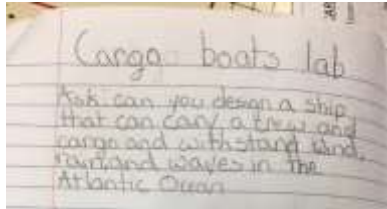 Cargo boats lab
Ask can you design a ship
that can cary a crew and
cargo and withstand wind,
rain and waves in the
Atlantic Ocean